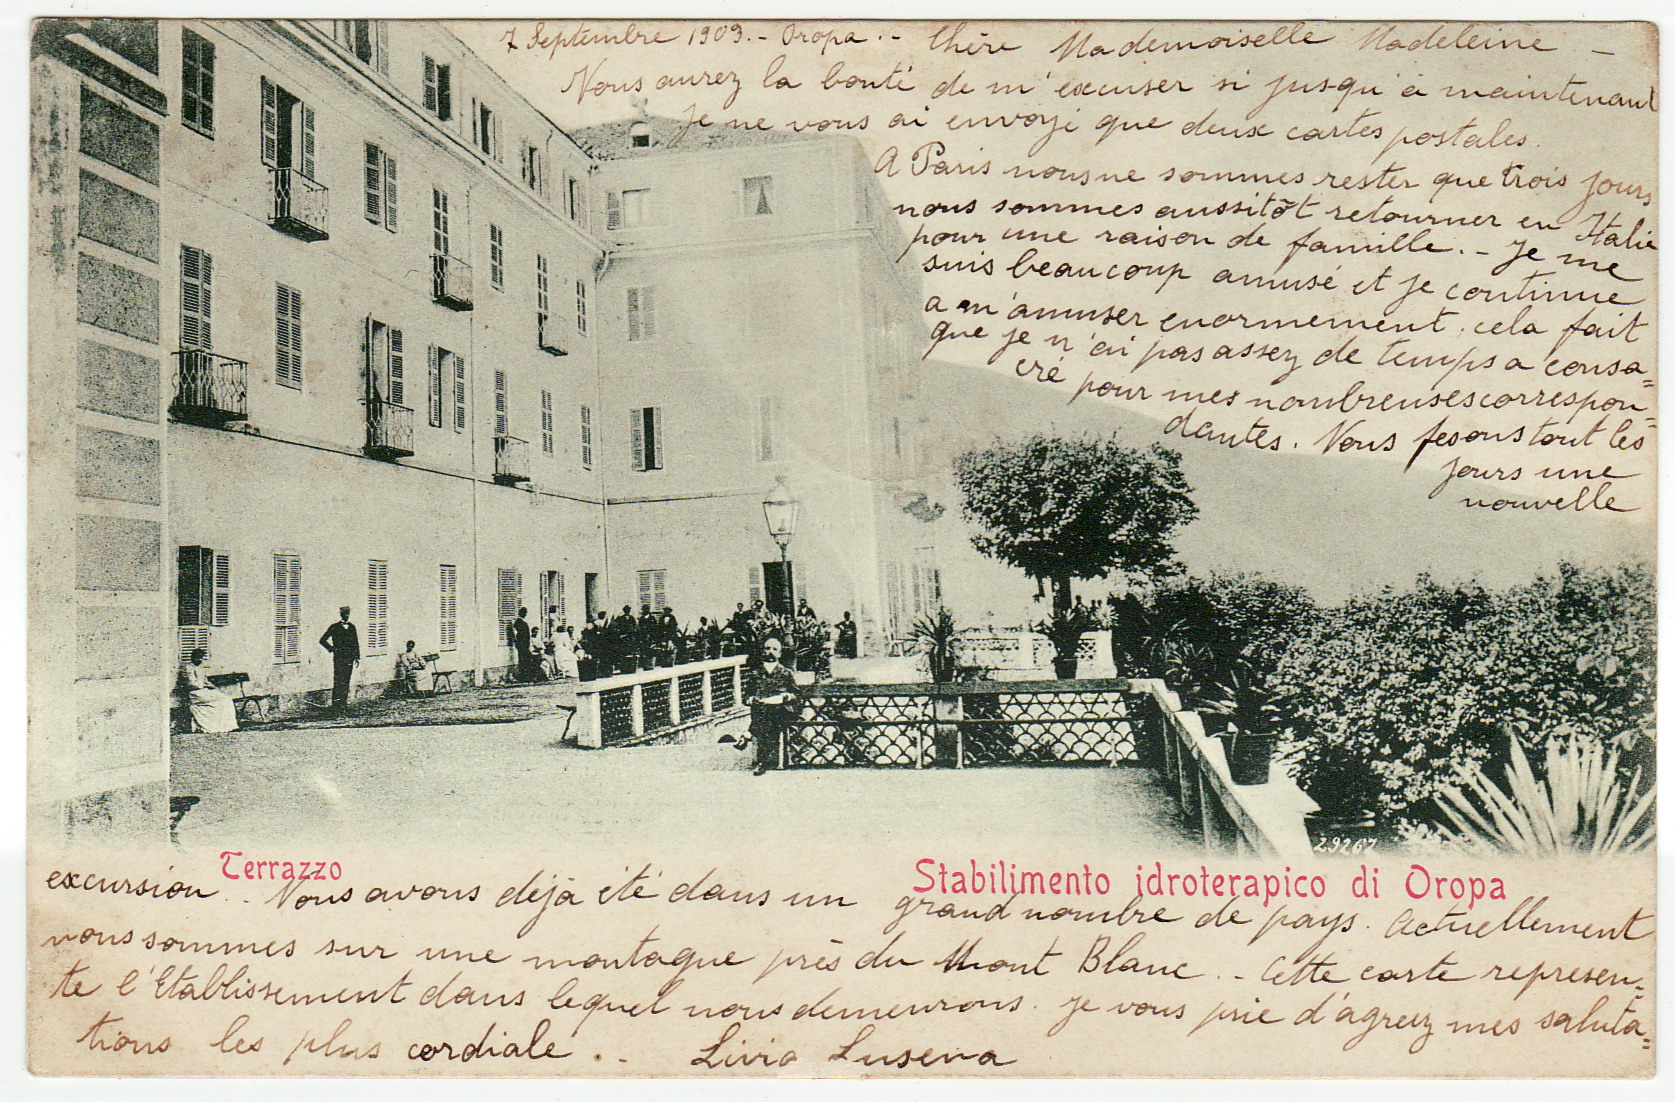 7 Septembre 1909. - Oropa. - Chère Mademoiselle Madeleine -
Vous aurez la bonté de m'excuser si jusqu'à maintenant
Je ne vous ai envoyé que deux cartes postales.
A Paris nous ne sommes rester que trois jours
nous sommes aussitôt retourner en Italie
pour une raison de famille. - Je me
suis beaucoup amusé et je continue
a m'amuser enormement. cela fait
que je n'ai pas assez de temps a consa=
cré pour mes nombreuses correspon=
dantes. Nous fesons tout les
jours une
nouvelle
29267
Terrazzo
Stabilimento idroterapico di Oropa
excursion.. Nous avons déjà été dans un grand nombre de pays. Actuellement
nous sommes sur une montagne près du Mont Blanc.- Cette carte represen=
te l'Etablissement dans lequel nous demeurons. Je vous prie d'agreez mes saluta=
tions les plus cordiale. - Livia Lusena